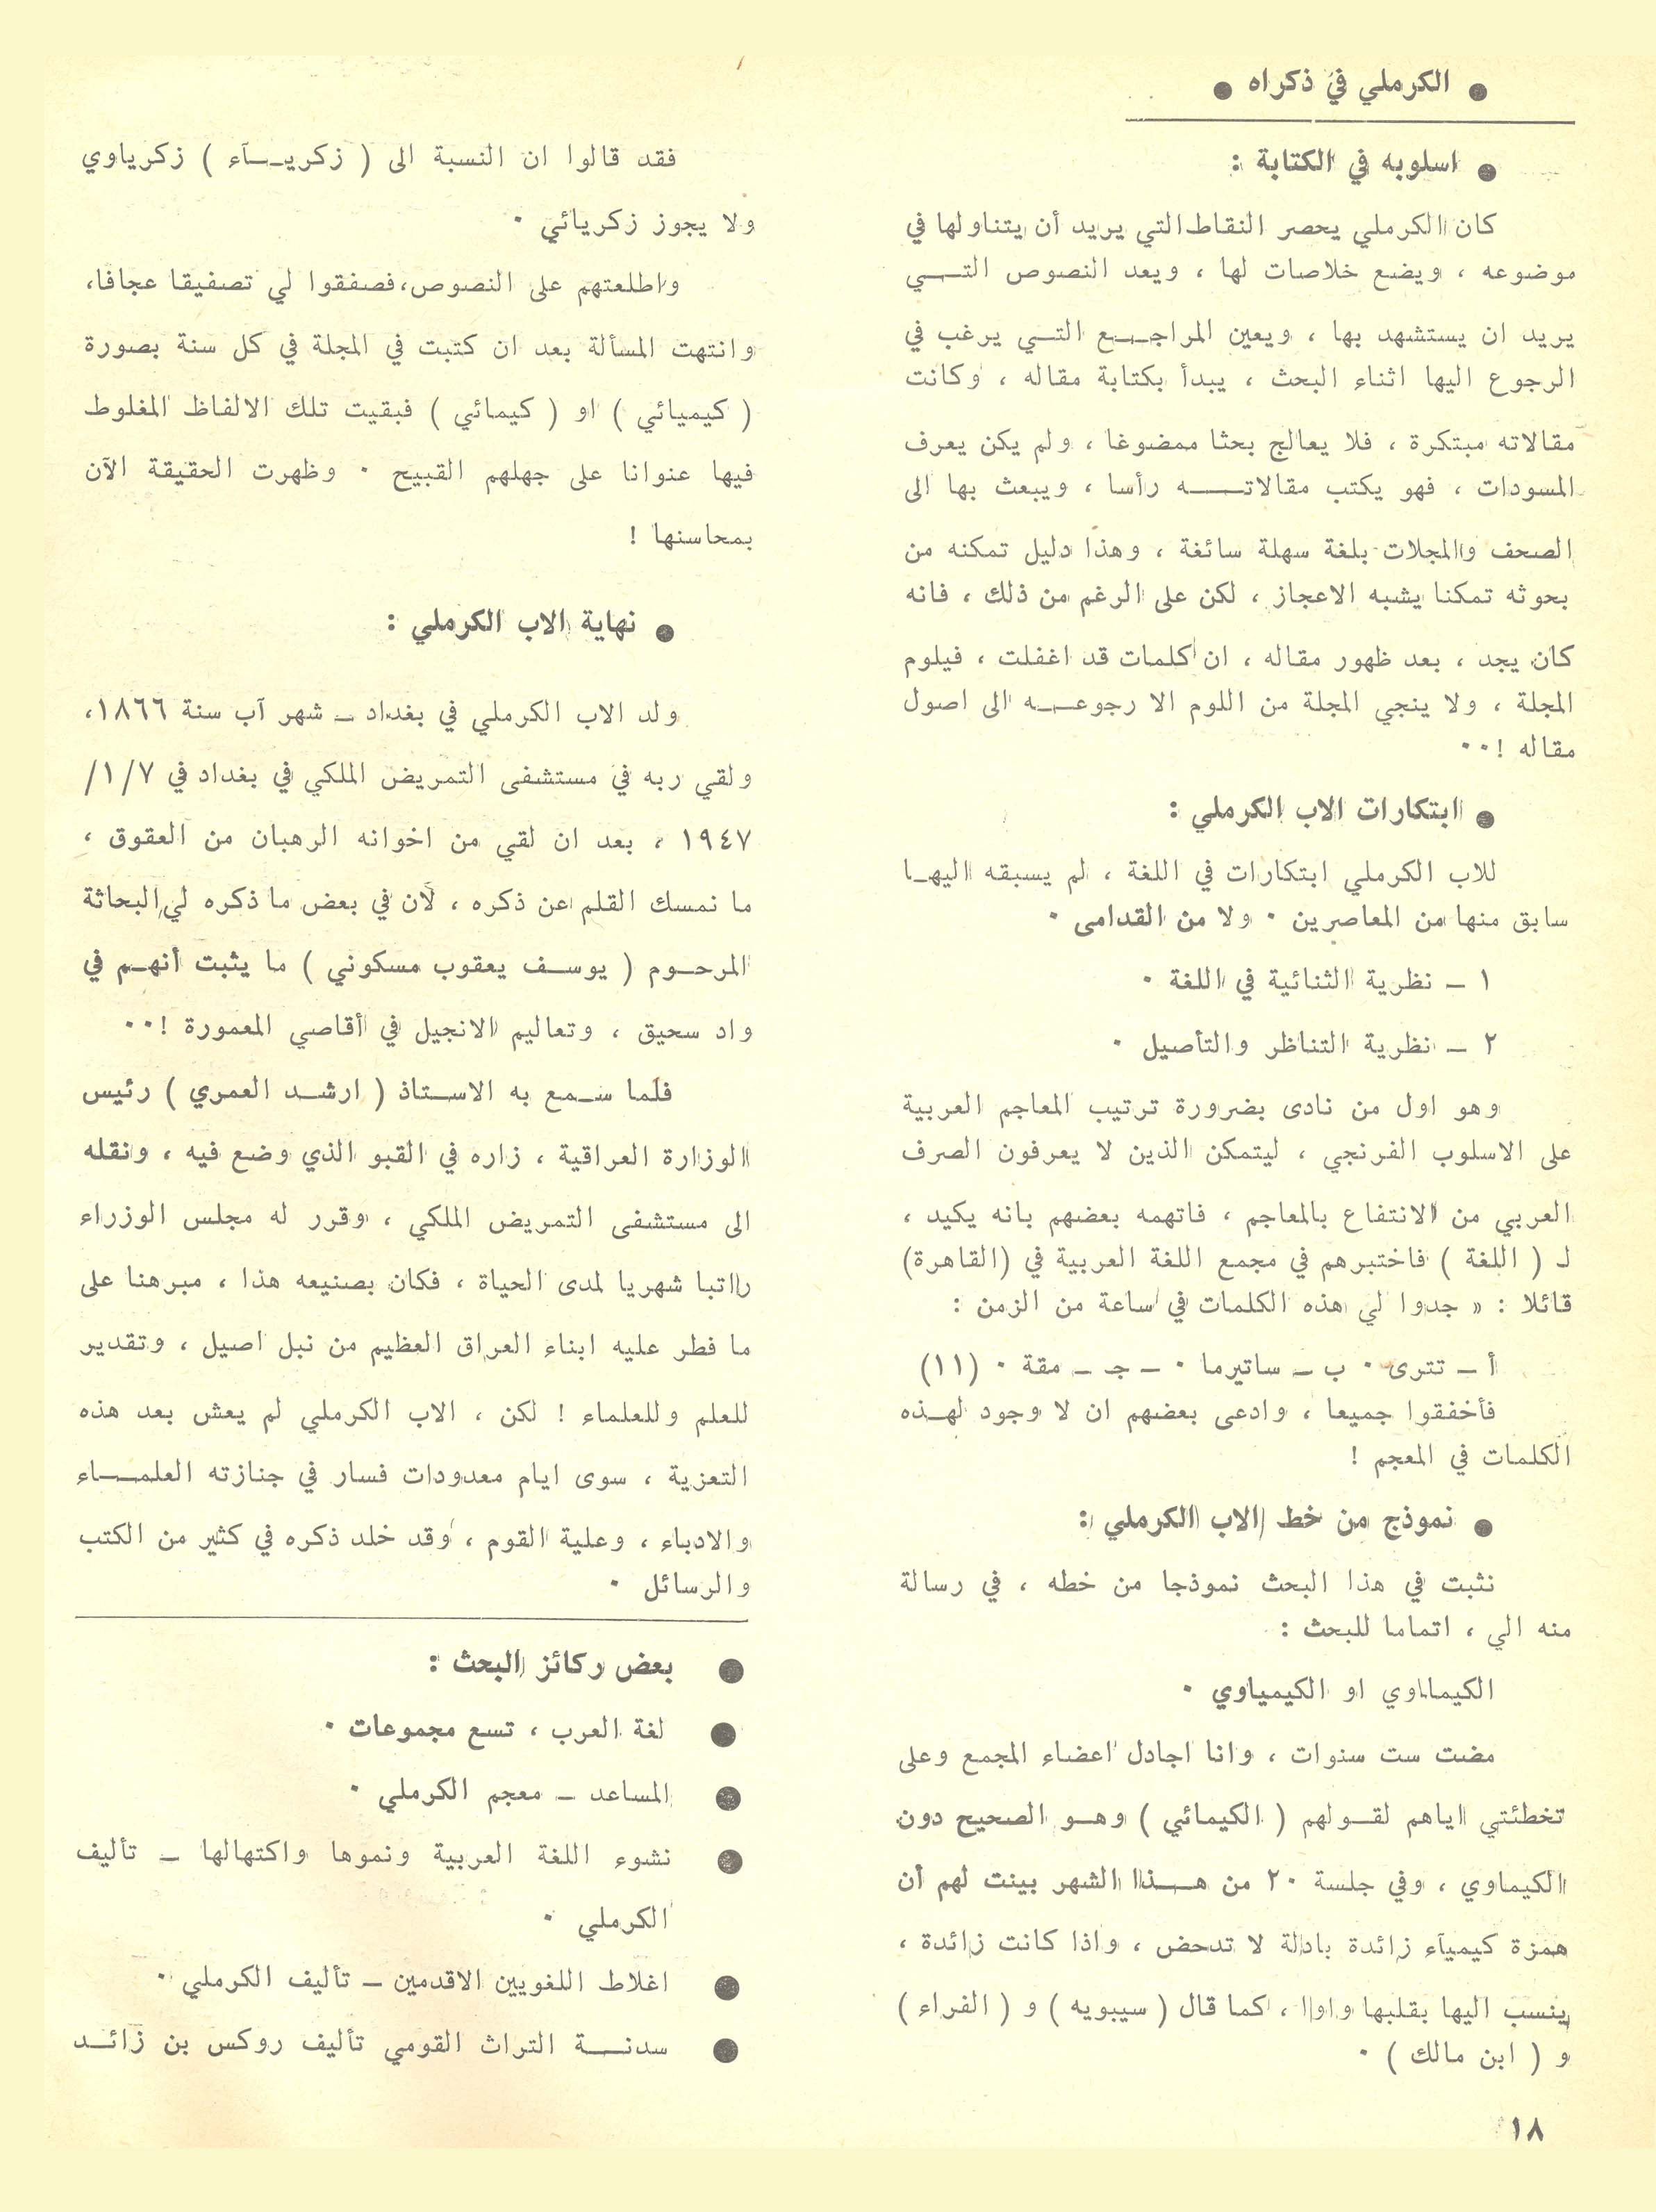 ● الكرملي في ذكراه ●
● اسلوبه في الكتابة :
كان الكرملي يحصر النقاط التي يريد أن يتناولها في
موضوعه ، ويضع خلاصات لها ، ويعد النصوص التــي
يريد ان يستشهد بها ، ويعين المراجــع التــي يرغب في
الرجوع اليها اثناء البحث ، يبدأ بكتابة مقاله ، وكانت
مقالاته مبتكرة ، فلا يعالج بحثا ممضوغا ، ولم يكن يعرف
المسودات ، فهو يكتب مقالاتــــه رأسا ، ويبعث بها الى
الصحف والمجلات بلغة سهلة سائغة ، وهذا دليل تمكنه من
بحوثه تمكنا يشبه الاعجاز ، لكن على الرغم من ذلك ، فانه
كان يجد ، بعد ظهور مقاله ، ان كلمات قد اغفلت ، فيلوم
المجلة ، ولا ينجي المجلة من اللوم الا رجوعــه الى اصول
مقاله !٠٠
● ابتكارات الاب الكرملي :
للاب الكرملي ابتكارات في اللغة ، لم يسبقه اليهـا
سابق منها من المعاصرين ٠ ولا من القدامى ٠
١ ــ نظرية الثنائية في اللغة ٠
٢ ــ نظرية التناظر والتأصيل ٠
وهو اول من نادى بضرورة ترتيب المعاجم العربية
على الاسلوب الفرنجي ، ليتمكن الذين لا يعرفون الصرف
العربي من الانتفاع بالمعاجم ، فاتهمه بعضهم بانه يكيد ،
لـ ( اللغة ) فاختبرهم في مجمع اللغة العربية في (القاهرة)
قائلا : « جدوا لي هذه الكلمات في ساعة من الزمن :
أ ــ تترى ٠ ب ــ ساتيرما ٠ ــ جـ ــ مقة ٠ (١١)
فأخفقوا جميعا ، وادعى بعضهم ان لا وجود لهــذه
الكلمات في المعجم !
● نموذج من خط الاب الكرملي :
نثبت في هذا البحث نموذجا من خطه ، في رسالة
منه الي ، اتماما للبحث :
الكيماوي او الكيمياوي ٠
مضت ست سنوات ، وانا اجادل اعضاء المجمع وعلى
تخطئتي اياهم لقــولهم ( الكيمائي ) وهــو الصحيح دون
الكيماوي ، وفي جلسة ٢٠ من هــذا الشهر بينت لهم أن
همزة كيمياء زائدة بادلة لا تدحض ، واذا كانت زائدة ،
ينسب اليها بقلبها واوا ، كما قال ( سيبويه ) و ( الفراء )
و ( ابن مالك ) ٠
١٨
فقد قالوا ان النسبة الى ( زكريــآء ) زكرياوي
ولا يجوز زكريائي ٠
واطلعتهم على النصوص، فصفقوا لي تصفيقا عجافا،
وانتهت المسألة بعد ان كتبت في المجلة في كل سنة بصورة
( كيميائي ) او ( كيمائي ) فبقيت تلك الالفاظ المغلوط
فيها عنوانا على جهلهم القبيح ٠ وظهرت الحقيقة الآن
بمحاسنها !
● نهاية الاب الكرملي :
ولد الاب الكرملي في بغداد ــ شهر آب سنة ١٨٦٦،
ولقي ربه في مستشفى التمريض الملكي في بغداد في ١/٧/
١٩٤٧ ، بعد ان لقي من اخوانه الرهبان من العقوق ،
ما نمسك القلم عن ذكره ، لأن في بعض ما ذكره لي البحاثة
المرحـوم ( يوسـف يعقوب مسكوني ) ما يثبت أنهـم في
واد سحيق ، وتعاليم الانجيل في أقاصي المعمورة !٠٠
فلما سـمع به الاسـتاذ ( ارشـد العمري ) رئيس
الوزارة العراقية ، زاره في القبو الذي وضع فيه ، ونقله
الى مستشفى التمريض الملكي ، وقرر له مجلس الوزراء
راتبا شهريا لمدى الحياة ، فكان بصنيعه هذا ، مبرهنا على
ما فطر عليه ابناء العراق العظيم من نبل اصيل ، وتقدير
للعلم وللعلماء ! لكن ، الاب الكرملي لم يعش بعد هذه
التعزية ، سوى ايام معدودات فسار في جنازته العلمــاء
والادباء ، وعلية القوم ، وقد خلد ذكره في كثير من الكتب
والرسائل ٠
● بعض ركائز البحث :
● لغة العرب ، تسع مجموعات ٠
● المساعد ــ معجم الكرملي ٠
● نشوء اللغة العربية ونموها واكتهالها ــ تأليف
الكرملي ٠
● اغلاط اللغويين الاقدمين ــ تأليف الكرملي ٠
● سدنــة التراث القومي تأليف روكس بن زائـد